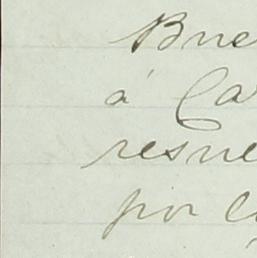 Bue
á Ca
resue
por c